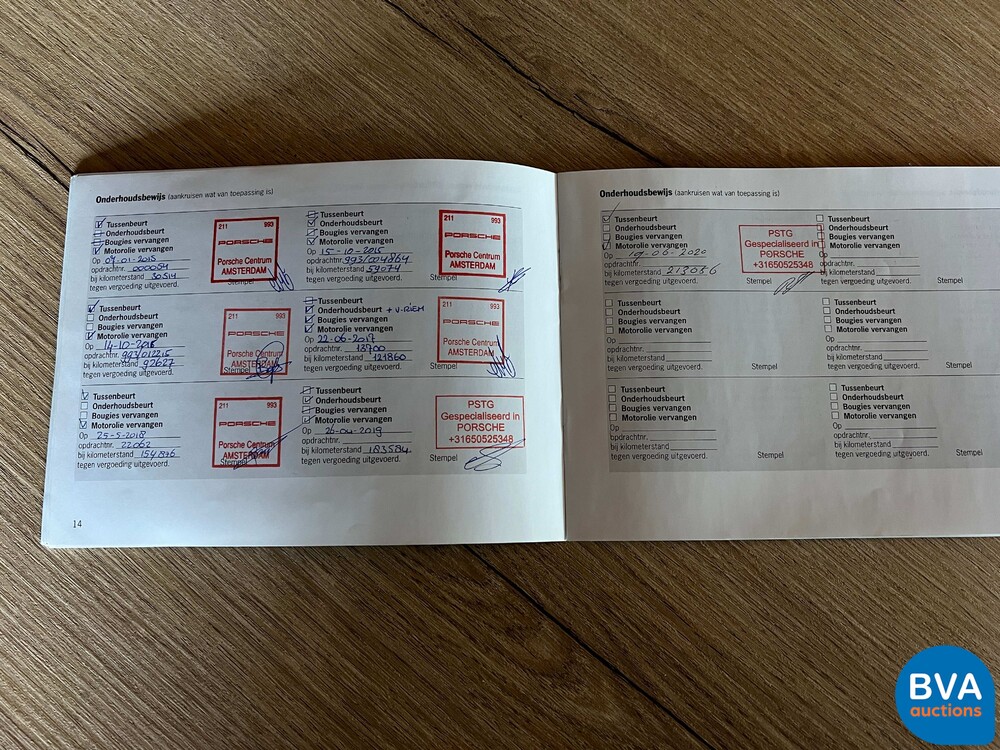 Onderhoudsbewijs (aankruisen wat van toepassing is)
Tussenbeurt
Onderhoudsbeurt
Bougies vervangen
Motorolie vervangen
Op 07-01-2015
opdrachtnr. 000054
bij kilometerstand 30514
tegen vergoeding uitgevoerd.
Stempel
211 993
PORSCHE
Porsche Centrum
AMSTERDAM
Tussenbeurt
Onderhoudsbeurt
Bougies vervangen
Motorolie vervangen
Op 15-10-2015
opdrachtnr. 993/004864
bij kilometerstand 59074
tegen vergoeding uitgevoerd.
Stempel
211 993
PORSCHE
Porsche Centrum
AMSTERDAM
Tussenbeurt
Onderhoudsbeurt
Bougies vervangen
Motorolie vervangen
Op 14-10-2016
opdrachtnr. 993/012215
bij kilometerstand 92627
tegen vergoeding uitgevoerd.
Stempel
211 993
PORSCHE
Porsche Centrum
AMSTERDAM
Tussenbeurt
Onderhoudsbeurt + V-RIEM
Bougies vervangen
Motorolie vervangen
Op 22-06-2017
opdrachtnr. 13700
bij kilometerstand 121860
tegen vergoeding uitgevoerd.
Stempel
211 993
PORSCHE
Porsche Centrum
AMSTERDAM
Tussenbeurt
Onderhoudsbeurt
Bougies vervangen
Motorolie vervangen
Op 25-5-2018
opdrachtnr. 22062
bij kilometerstand 154846
tegen vergoeding uitgevoerd.
Stempel
211 993
PORSCHE
Porsche Centrum
AMSTERDAM
Tussenbeurt
Onderhoudsbeurt
Bougies vervangen
Motorolie vervangen
Op 26-04-2019
opdrachtnr.
bij kilometerstand 183584
tegen vergoeding uitgevoerd.
Stempel
PSTG
Gespecialiseerd in
PORSCHE
+31650525348
14
Onderhoudsbewijs (aankruisen wat van toepassing is)
Tussenbeurt
Onderhoudsbeurt
Bougies vervangen
Motorolie vervangen
Op 19-06-2020
opdrachtnr.
bij kilometerstand 213086
tegen vergoeding uitgevoerd.
Stempel
PSTG
Gespecialiseerd in
PORSCHE
+31650525348
Tussenbeurt
Onderhoudsbeurt
Bougies vervangen
Motorolie vervangen
Op
opdrachtnr.
bij kilometerstand
tegen vergoeding uitgevoerd.
Stempel
Tussenbeurt
Onderhoudsbeurt
Bougies vervangen
Motorolie vervangen
Op
opdrachtnr.
bij kilometerstand
tegen vergoeding uitgevoerd.
Stempel
Tussenbeurt
Onderhoudsbeurt
Bougies vervangen
Motorolie vervangen
Op
opdrachtnr.
bij kilometerstand
tegen vergoeding uitgevoerd.
Stempel
Tussenbeurt
Onderhoudsbeurt
Bougies vervangen
Motorolie vervangen
Op
opdrachtnr.
bij kilometerstand
tegen vergoeding uitgevoerd.
Stempel
Tussenbeurt
Onderhoudsbeurt
Bougies vervangen
Motorolie vervangen
Op
opdrachtnr.
bij kilometerstand
tegen vergoeding uitgevoerd.
Stempel
BVA
auctions